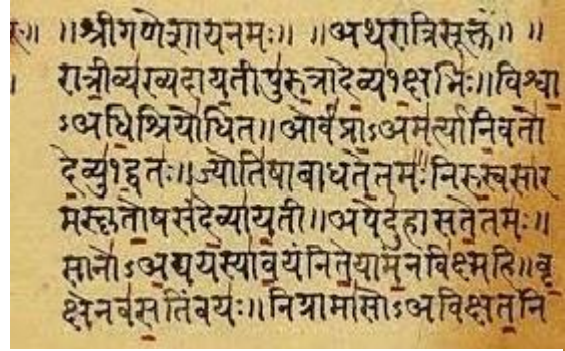 ॥श्रीगणेशायनमः॥ ॥अथरात्रिसूक्तं॥ ॥
रात्रीव्यख्यदायतीपुरुत्रादेव्य१क्षभिः॥विश्वा
ऽअधिश्रियोधित॥ओर्वप्राऽअमर्त्यानिवतो
देव्यु१द्वतः॥ज्योतिषाबाधतेतमः॥निरुस्वसार
मस्कृतोषसंदेव्यायती॥अपेदुहासतेतमः॥
सानोऽअद्ययस्यावयंनितेयामन्नविक्ष्महि॥वृ
क्षेनवसतिंवयः॥निग्रामासोऽअविक्षतनि